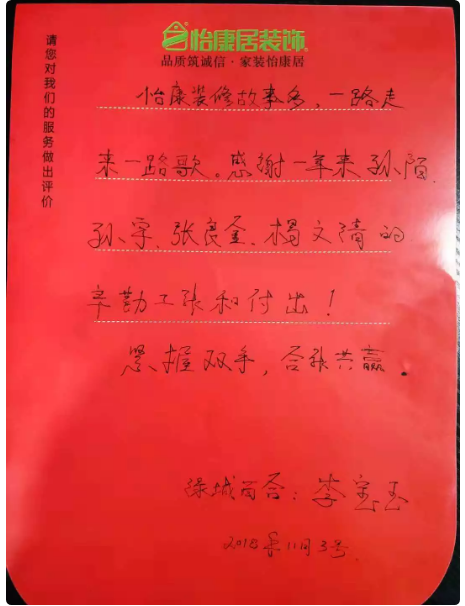 怡康居装饰
品质筑诚信·家装怡康居
请您对我们的服务做出评价
怡康装修故事多，一路走
来一路歌。感谢一年来孙陌、
孙宇、张良金、杨文清的
辛勤工张和付出！
紧握双手，合张共赢。
绿城百合：李宝玉
2018年11月3号